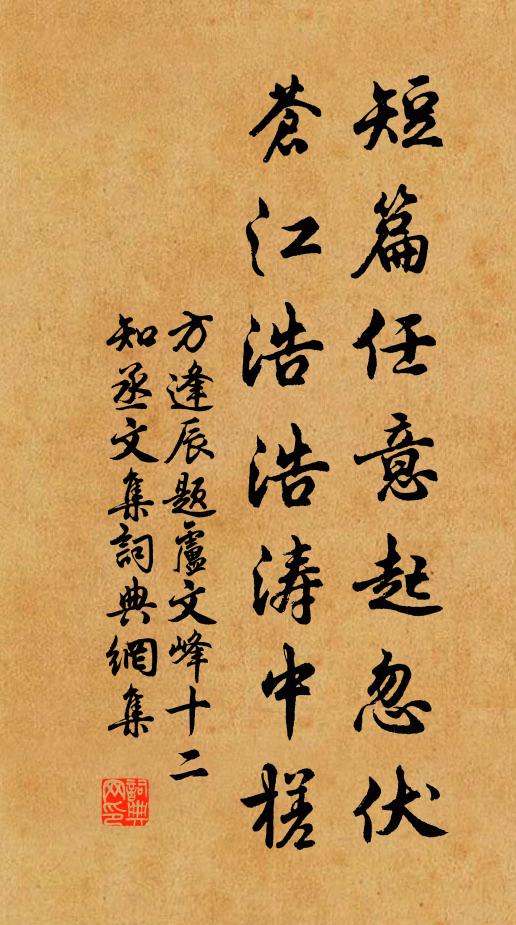 短篇任意起忽伏
蒼江浩浩涛中槎
方逢辰题盧文峰十二
知丞文集詞典網集
詞典
网印